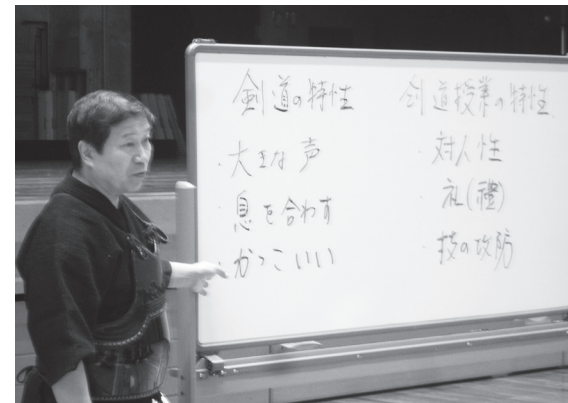 剣道の特性
・大きな声
・息を合わす
・かっこいい
剣道授業の特性
・対人性
・礼(禮)
・技の攻防